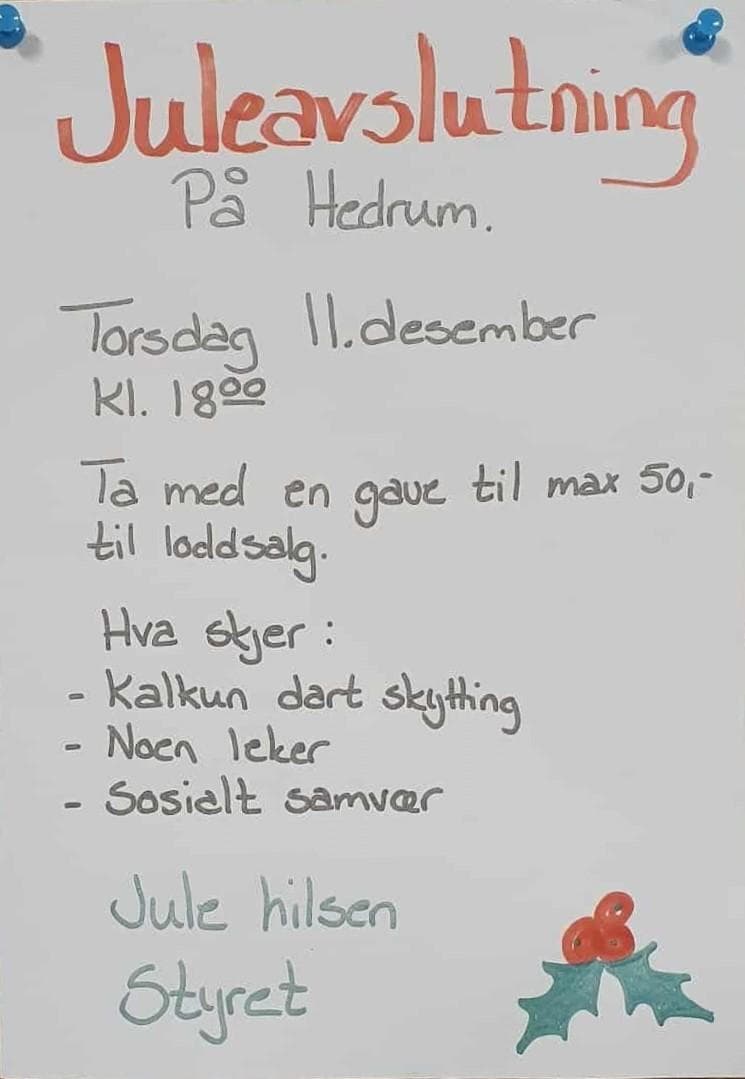 Juleavslutning
På Hedrum.
Torsdag 11. desember
Kl. 18⁰⁰
Ta med en gave til max 50,-
til loddsalg.
Hva skjer :
- Kalkun dart skytting
- Noen leker
- Sosialt samvær
Jule hilsen
Styret